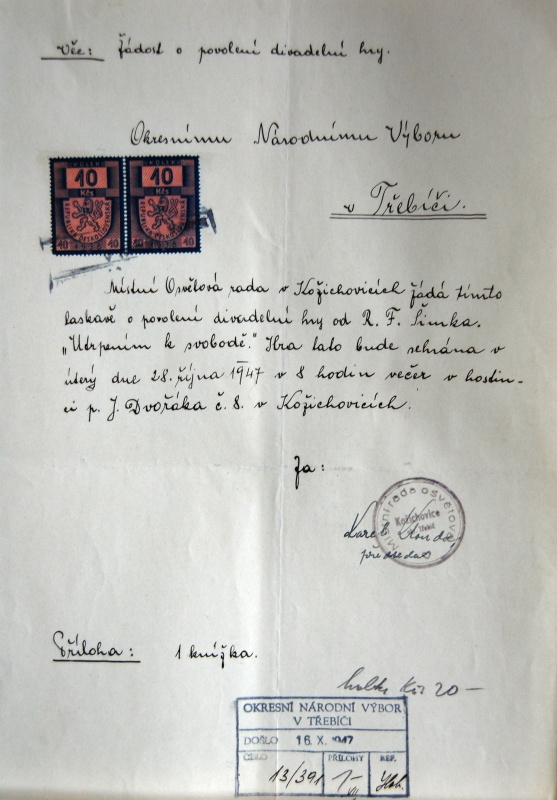 Věc: Žádost o povolení divadelní hry.
Okresnímu Národnímu Výboru
v Třebíči.
KOLEK KOLEK
10 10
Kčs Kčs
REPUBLIKA ČESKOSLOVENSKÁ REPUBLIKA ČESKOSLOVENSKÁ
10 10 10 10
Místní Osvětová rada v Kožichovicích žádá tímto
laskavě o povolení divadelní hry od R. F. Šimka.
„Utrpením k svobodě." Hra tato bude sehrána v
úterý dne 28. října 1947 v 8 hodin večer v hostin-
ci p. J. Dvořáka č. 8. v Kožichovicích.
Za:
Místní rada osvětová
Kožichovice
Karel
předseda
Příloha: 1 knížka.
Kčs 20 —
OKRESNÍ NÁRODNÍ VÝBOR
V TŘEBÍČI
DOŠLO 16. X. 1947
ČÍSLO PŘÍLOHY REF.
13/391 1-